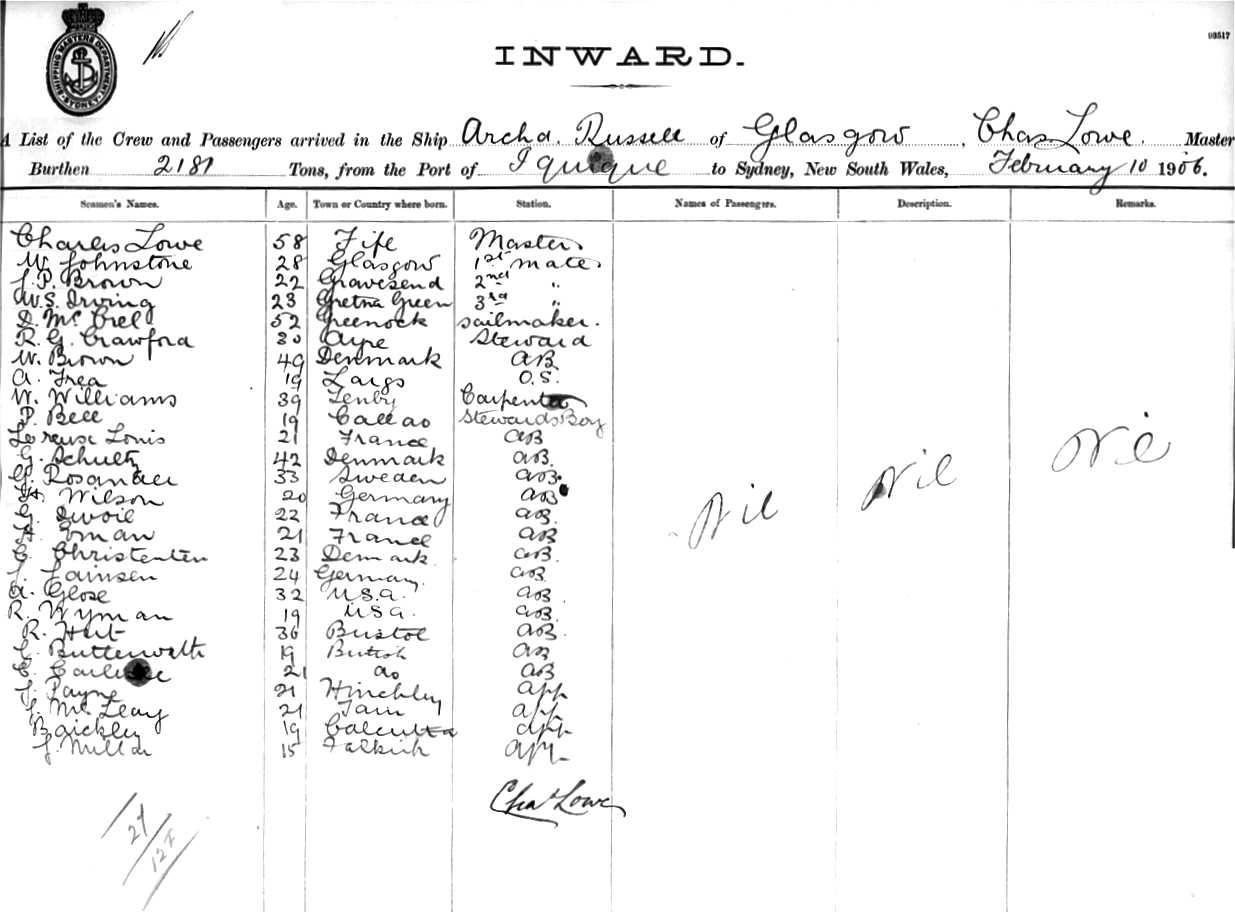 SHIPPING MASTERS DEPARTMENT SYDNEY
99517
INWARD.
A List of the Crew and Passengers arrived in the Ship Archd. Russell of Glasgow, Chas Lowe. Master
Burthen 2181 Tons, from the Port of Iquique to Sydney, New South Wales, February 10 1906.
Seamen's Names. Age. Town or Country where born. Station. Names of Passengers. Description. Remarks.
Charles Lowe 58 Fife Master
W. Johnstone 28 Glasgow 1st mate
J. P. Brown 22 Gravesend 2nd "
W. S. Irving 23 Gretna Green 3rd "
D. Mc 52 Greenock sailmaker.
R. G. Crawford 30 Ayre Steward
W. Brown 49 Denmark AB
A. Frea 19 Largs O.S.
W. Williams 39 Tenby Carpenter
P. Bell 19 Callao Stewards Boy
Louis 21 France AB
G. Schultz 42 Denmark AB.
G. 33 Sweden AB.
H. Wilson 20 Germany AB
G. 22 France AB.
H. 21 France AB
C. Christenten 23 Demark. AB.
24 Germany. AB
A. Glose 32 U.S.A. AB.
R. Wyman 19 U.S.A. AB.
R. 36 Bristol AB.
Butterwalth 19 British AB
21 do AB
J. Payne 21 Hinckley app
J. McLeay 21 Tain app
19 Calcutta app
J. Millar 15 Falkirk app.
Nil Nil Nil
Chas Lowe
27
127